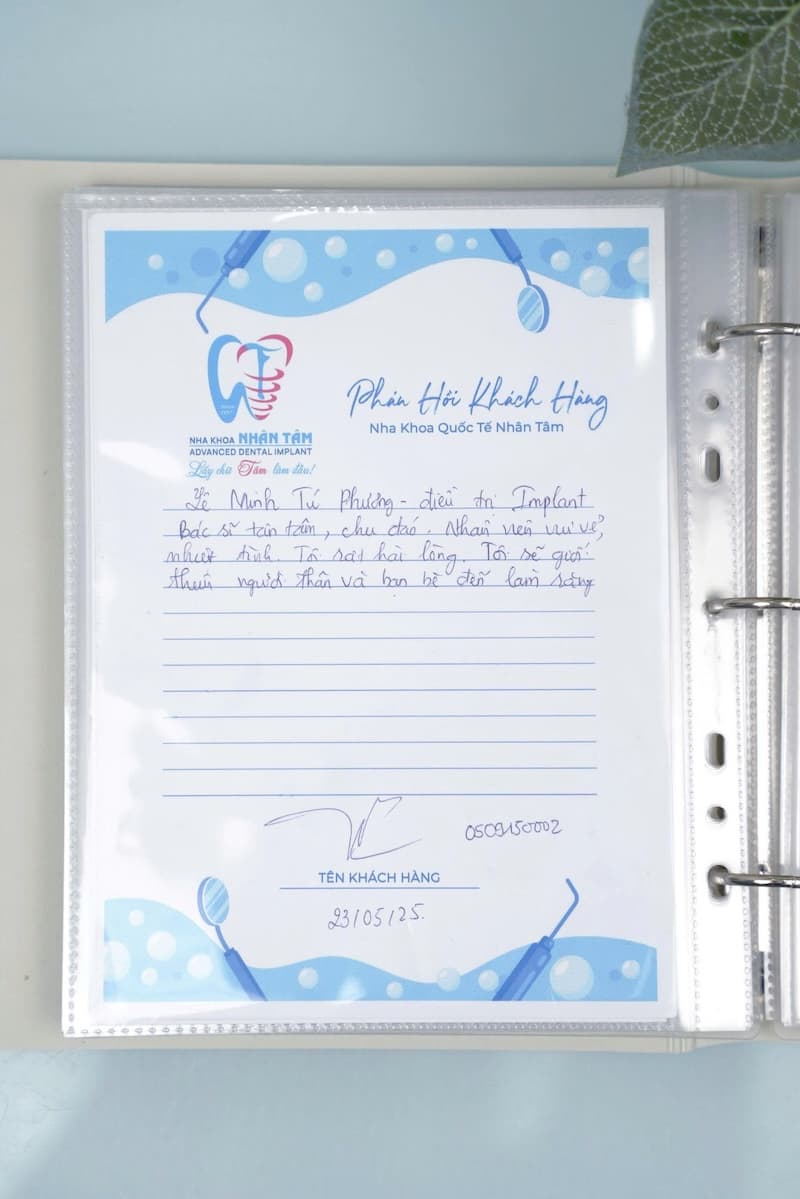 Phản Hồi Khách Hàng
Nha Khoa Quốc Tế Nhân Tâm
NHA KHOA NHÂN TÂM
ADVANCED DENTAL IMPLANT
Lấy chữ Tâm làm đầu!
Lê Minh Tú Phương - điều trị Implant
Bác sĩ tận tâm, chu đáo. Nhân viên vui vẻ,
nhiệt tình. Tôi rất hài lòng. Tôi sẽ giới
thiệu người thân và bạn bè đến làm răng
0509150002
TÊN KHÁCH HÀNG
23/05/25.